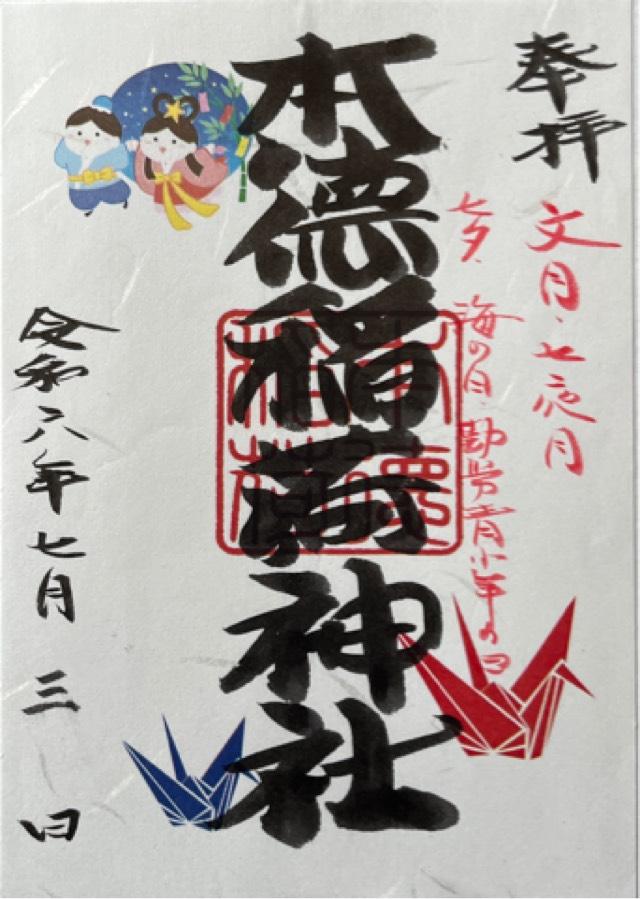 奉拝
文月・七夜月
七夕、海の日、勤労青少年の日
本徳稲荷神社
令和六年七月三日